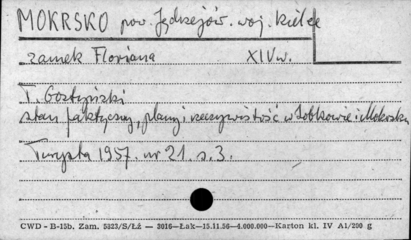 MOKRSKO pow. Jędrzejów. woj. kielce
zamek Floriana XIV w.
T. Gostyński
stan faktyczny, plany i rzeczywistość w Sobkowie i Mokrsku
Turysta 1957. nr 21. s. 3.
CWD - B-15b. Zam. 5323/S/Łż — 3016—Łak—15.11.56—4.000.000—Karton kl. IV A1/200 g